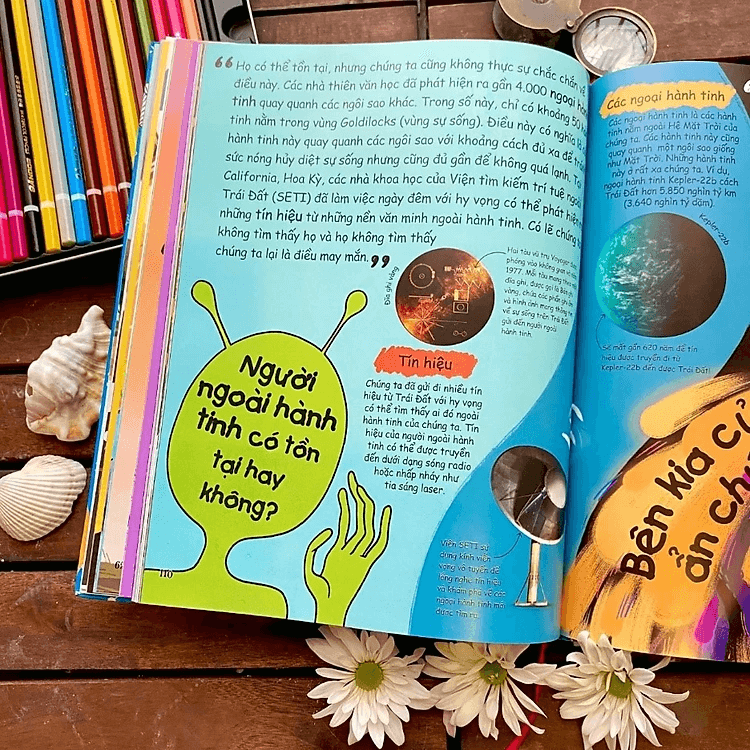 “ Họ có thể tồn tại, nhưng chúng ta cũng không thực sự chắc chắn về
điều này. Các nhà thiên văn học đã phát hiện ra gần 4.000 ngoại hành
tinh quay quanh các ngôi sao khác. Trong số này, chỉ có khoảng 50
tinh nằm trong vùng Goldilocks (vùng sự sống). Điều này có nghĩa là
hành tinh này quay quanh các ngôi sao với khoảng cách đủ xa để
sức nóng hủy diệt sự sống nhưng cũng đủ gần để không quá lạnh. Tại
California, Hoa Kỳ, các nhà khoa học của Viện tìm kiếm trí tuệ ngoài
Trái Đất (SETI) đã làm việc ngày đêm với hy vọng có thể phát hiện
những tín hiệu từ những nền văn minh ngoài hành tinh. Có lẽ chúng
không tìm thấy họ và họ không tìm thấy
chúng ta lại là điều may mắn. ”
Người
ngoài hành
tinh có tồn
tại hay
không?
Đĩa ghi vàng
Hai tàu vũ trụ Voyager được
phóng vào không gian
1977. Mỗi tàu mang theo
đĩa ghi, được gọi là Bản ghi
vàng, chứa các phần ghi âm
và hình ảnh mang thông tin
về sự sống trên Trái Đất
gửi đến người ngoài
hành tinh.
Tín hiệu
Chúng ta đã gửi đi nhiều tín
hiệu từ Trái Đất với hy vọng
có thể tìm thấy ai đó ngoài
hành tinh của chúng ta. Tín
hiệu của người ngoài hành
tinh có thể được truyền
đến dưới dạng sóng radio
hoặc nhấp nháy như
tia sáng laser.
Viện SETI sử
dụng kính viễn
vọng vô tuyến để
lắng nghe tín hiệu
và khám phá về các
ngoại hành tinh mới
được tìm ra.
110
Các ngoại hành tinh
Các ngoại hành tinh là các hành
tinh nằm ngoài Hệ Mặt Trời của
chúng ta. Các hành tinh này cũng
quay quanh một ngôi sao giống
như Mặt Trời. Những hành tinh
này ở rất xa chúng ta. Ví dụ,
ngoại hành tinh Kepler-22b cách
Trái Đất hơn 5.850 nghìn tỷ km
(3.640 nghìn tỷ dặm).
Kepler-22b
Sẽ mất gần 620 năm để tín
hiệu được truyền đi từ
Kepler-22b đến được Trái Đất!
Bên kia
ẩn